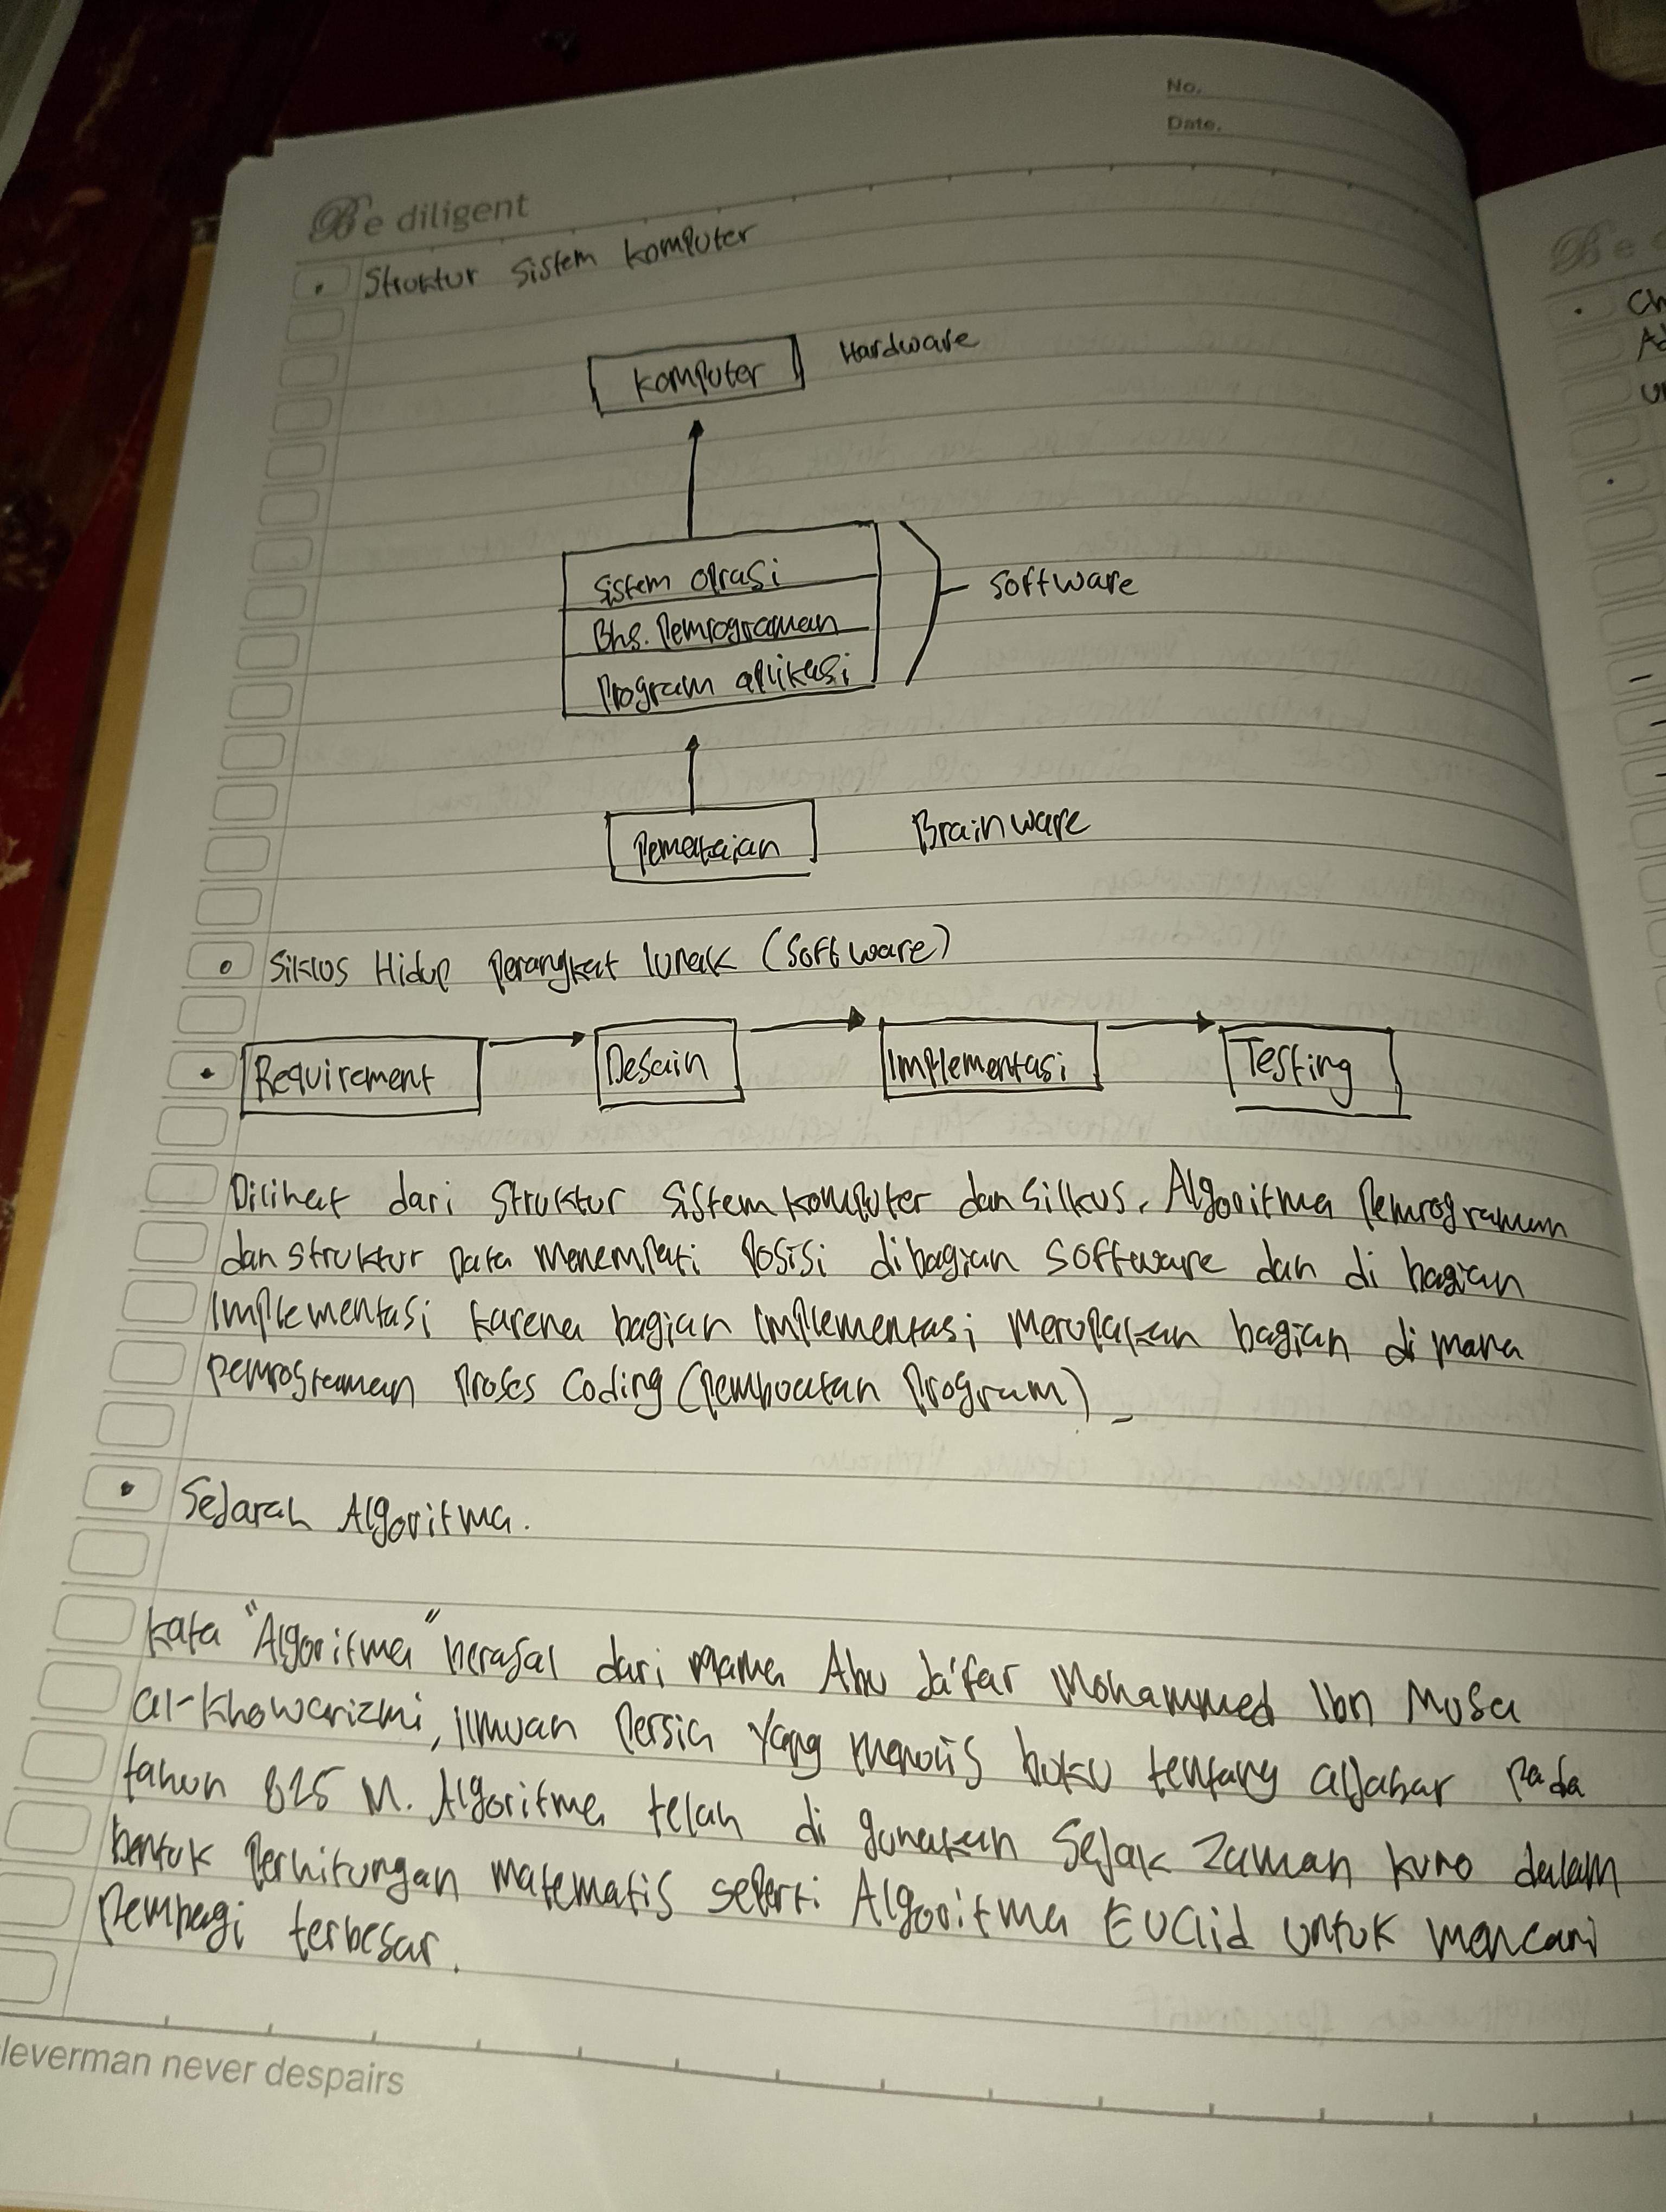 No.
Date.
Be diligent
• Struktur sistem komputer
Komputer Hardware
Sistem oprasi
Bhs. Pemrograman
Program aplikasi
Software
Pemakaian Brainware
Siklos Hidup Perangkat lunak (Software)
• Requirement Desain Implementasi Testing
Dilihat dari struktur sistem komputer dan silkus, Algoritma Pemrograman
dan struktur Data menempati Posisi dibagian software dan di bagian
Implementasi karena bagian Implementasi merupakan bagian di mana
pemrograman Proses Coding (pembuatan Program)
• Sejarah Algoritma.
Kata "Algoritma" berasal dari Nama Abu Ja'far Mohammed Ibn Musa
al-Khowarizmi, Ilmuan Persia Yang menulis buku tentang aljabar Pada
tahun 825 M. Algoritma telah di gunakan Sejak Zaman kuno dalam
bentuk Perhitungan matematis seperti Algoritma EUClid untuk mencari
Pembagi terbesar.
leverman never despairs
Be
•
Ch
Ad